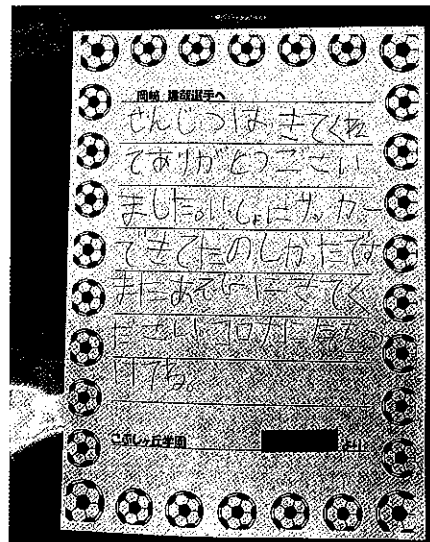 岡崎 選手へ
せんじつは きてくださっ
てありがとうござい
ました。いっしょにサッカー
できてたのしかたです
またあそびにきてく
ださい コロナにきをつ
けてね。
こぶしヶ丘学園 より